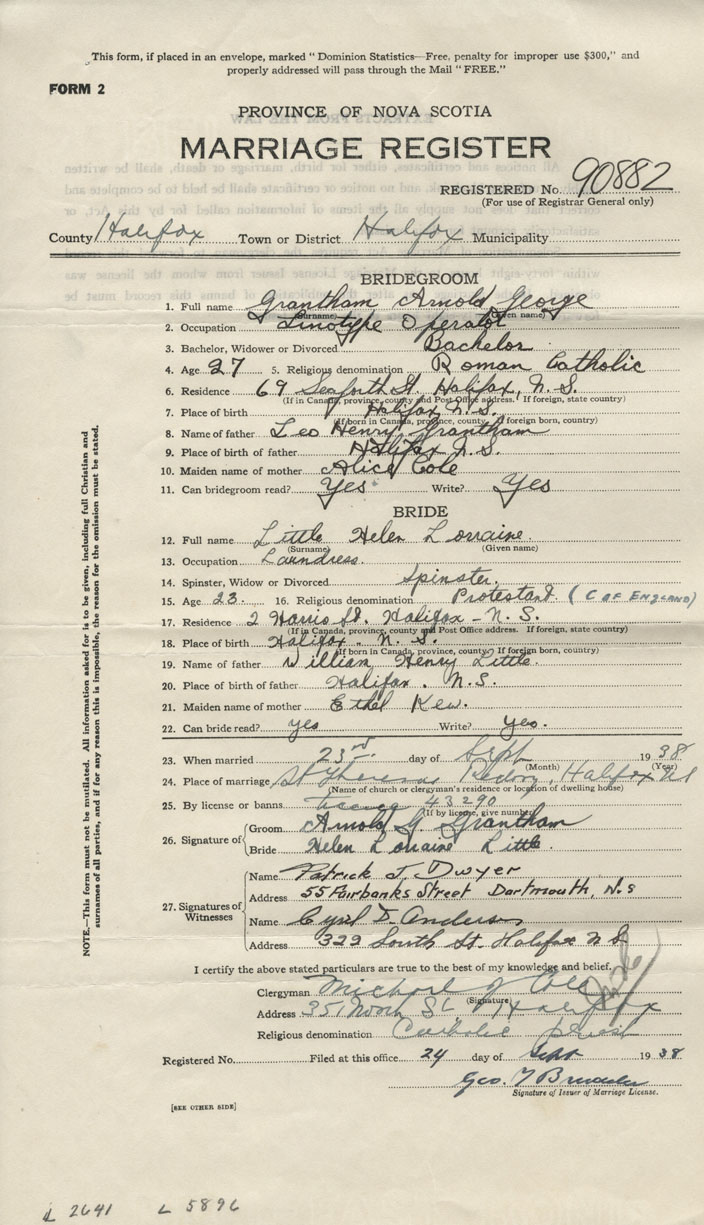 This form, if placed in an envelope, marked "Dominion Statistics—Free, penalty for improper use $300," and
properly addressed will pass through the Mail "FREE."
FORM 2
PROVINCE OF NOVA SCOTIA
MARRIAGE REGISTER
REGISTERED No. 90882
(For use of Registrar General only)
County Halifax Town or District Halifax Municipality
BRIDEGROOM
1. Full name Grantham Arnold George
(Surname) (Given name)
2. Occupation Linotype Operator
3. Bachelor, Widower or Divorced Bachelor
4. Age 27 5. Religious denomination Roman Catholic
6. Residence 69 Seaforth St. Halifax, N.S.
(If in Canada, province, county and Post Office address. If foreign, state country)
7. Place of birth Halifax N.S.
(If born in Canada, province, county. If foreign born, country)
8. Name of father Leo Henry Grantham
9. Place of birth of father Halifax N.S.
10. Maiden name of mother Alice Cole
11. Can bridegroom read? Yes Write? Yes
BRIDE
12. Full name Little Helen Lorraine.
(Surname) (Given name)
13. Occupation Laundress.
14. Spinster, Widow or Divorced Spinster.
15. Age 23. 16. Religious denomination Protestant. (C OF ENGLAND)
17. Residence 2 Harris St. Halifax - N.S.
(If in Canada, province, county and Post Office address. If foreign, state country)
18. Place of birth Halifax. N.S.
(If born in Canada, province, county. If foreign born, country)
19. Name of father William Henry Little.
20. Place of birth of father Halifax. N.S.
21. Maiden name of mother Ethel Kew.
22. Can bride read? yes Write? yes.
23. When married 23rd day of Sept 1938
(Month) (Year)
24. Place of marriage St Theresas Rectory, Halifax NS
(Name of church or clergyman's residence or location of dwelling house)
25. By license or banns 43290
(If by license, give number)
26. Signature of Groom Arnold G. Grantham
Bride Helen Lorraine Little.
27. Signatures of Witnesses Name Patrick J. Dwyer
Address 55 Fairbanks Street Dartmouth, N.S
Name Cyril D. Anderson
Address 322 South St. Halifax N S
I certify the above stated particulars are true to the best of my knowledge and belief.
Clergyman Michael J Cole
(Signature)
Address 351 North St Halifax
Religious denomination Catholic priest
Registered No. Filed at this office 24 day of Sept 1938
Geo. T
Signature of Issuer of Marriage License.
[SEE OTHER SIDE]
NOTE.—This form must not be mutilated. All information asked for is to be given, including full Christian and
surnames of all parties, and if for any reason this is impossible, the reason for the omission must be stated.
L 2641 L 5896